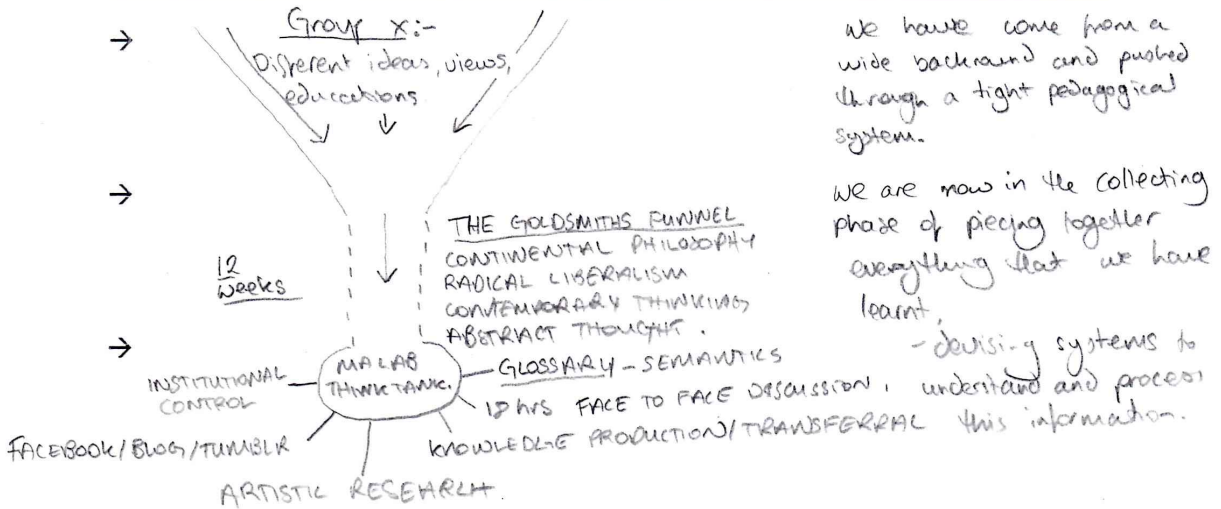 Group x:-
Different ideas, views,
educations
12
weeks
THE GOLDSMITHS FUNNEL
CONTINENTAL PHILOSOPHY
RADICAL LIBERALISM
CONTEMPORARY THINKING
ABSTRACT THOUGHT.
MA LAB
THINKTANK.
INSTITUTIONAL
CONTROL
FACEBOOK/BLOG/TUMBLR
ARTISTIC RESEARCH.
GLOSSARY - SEMANTICS
18 hrs FACE TO FACE DISCUSSION,
KNOWLEDGE PRODUCTION/TRANSFERRAL
we have come from a
wide backround and pushed
through a tight pedagogical
system.
we are now in the collecting
phase of piecing together
everything that we have
learnt,
- devising systems to
understand and process
this information.